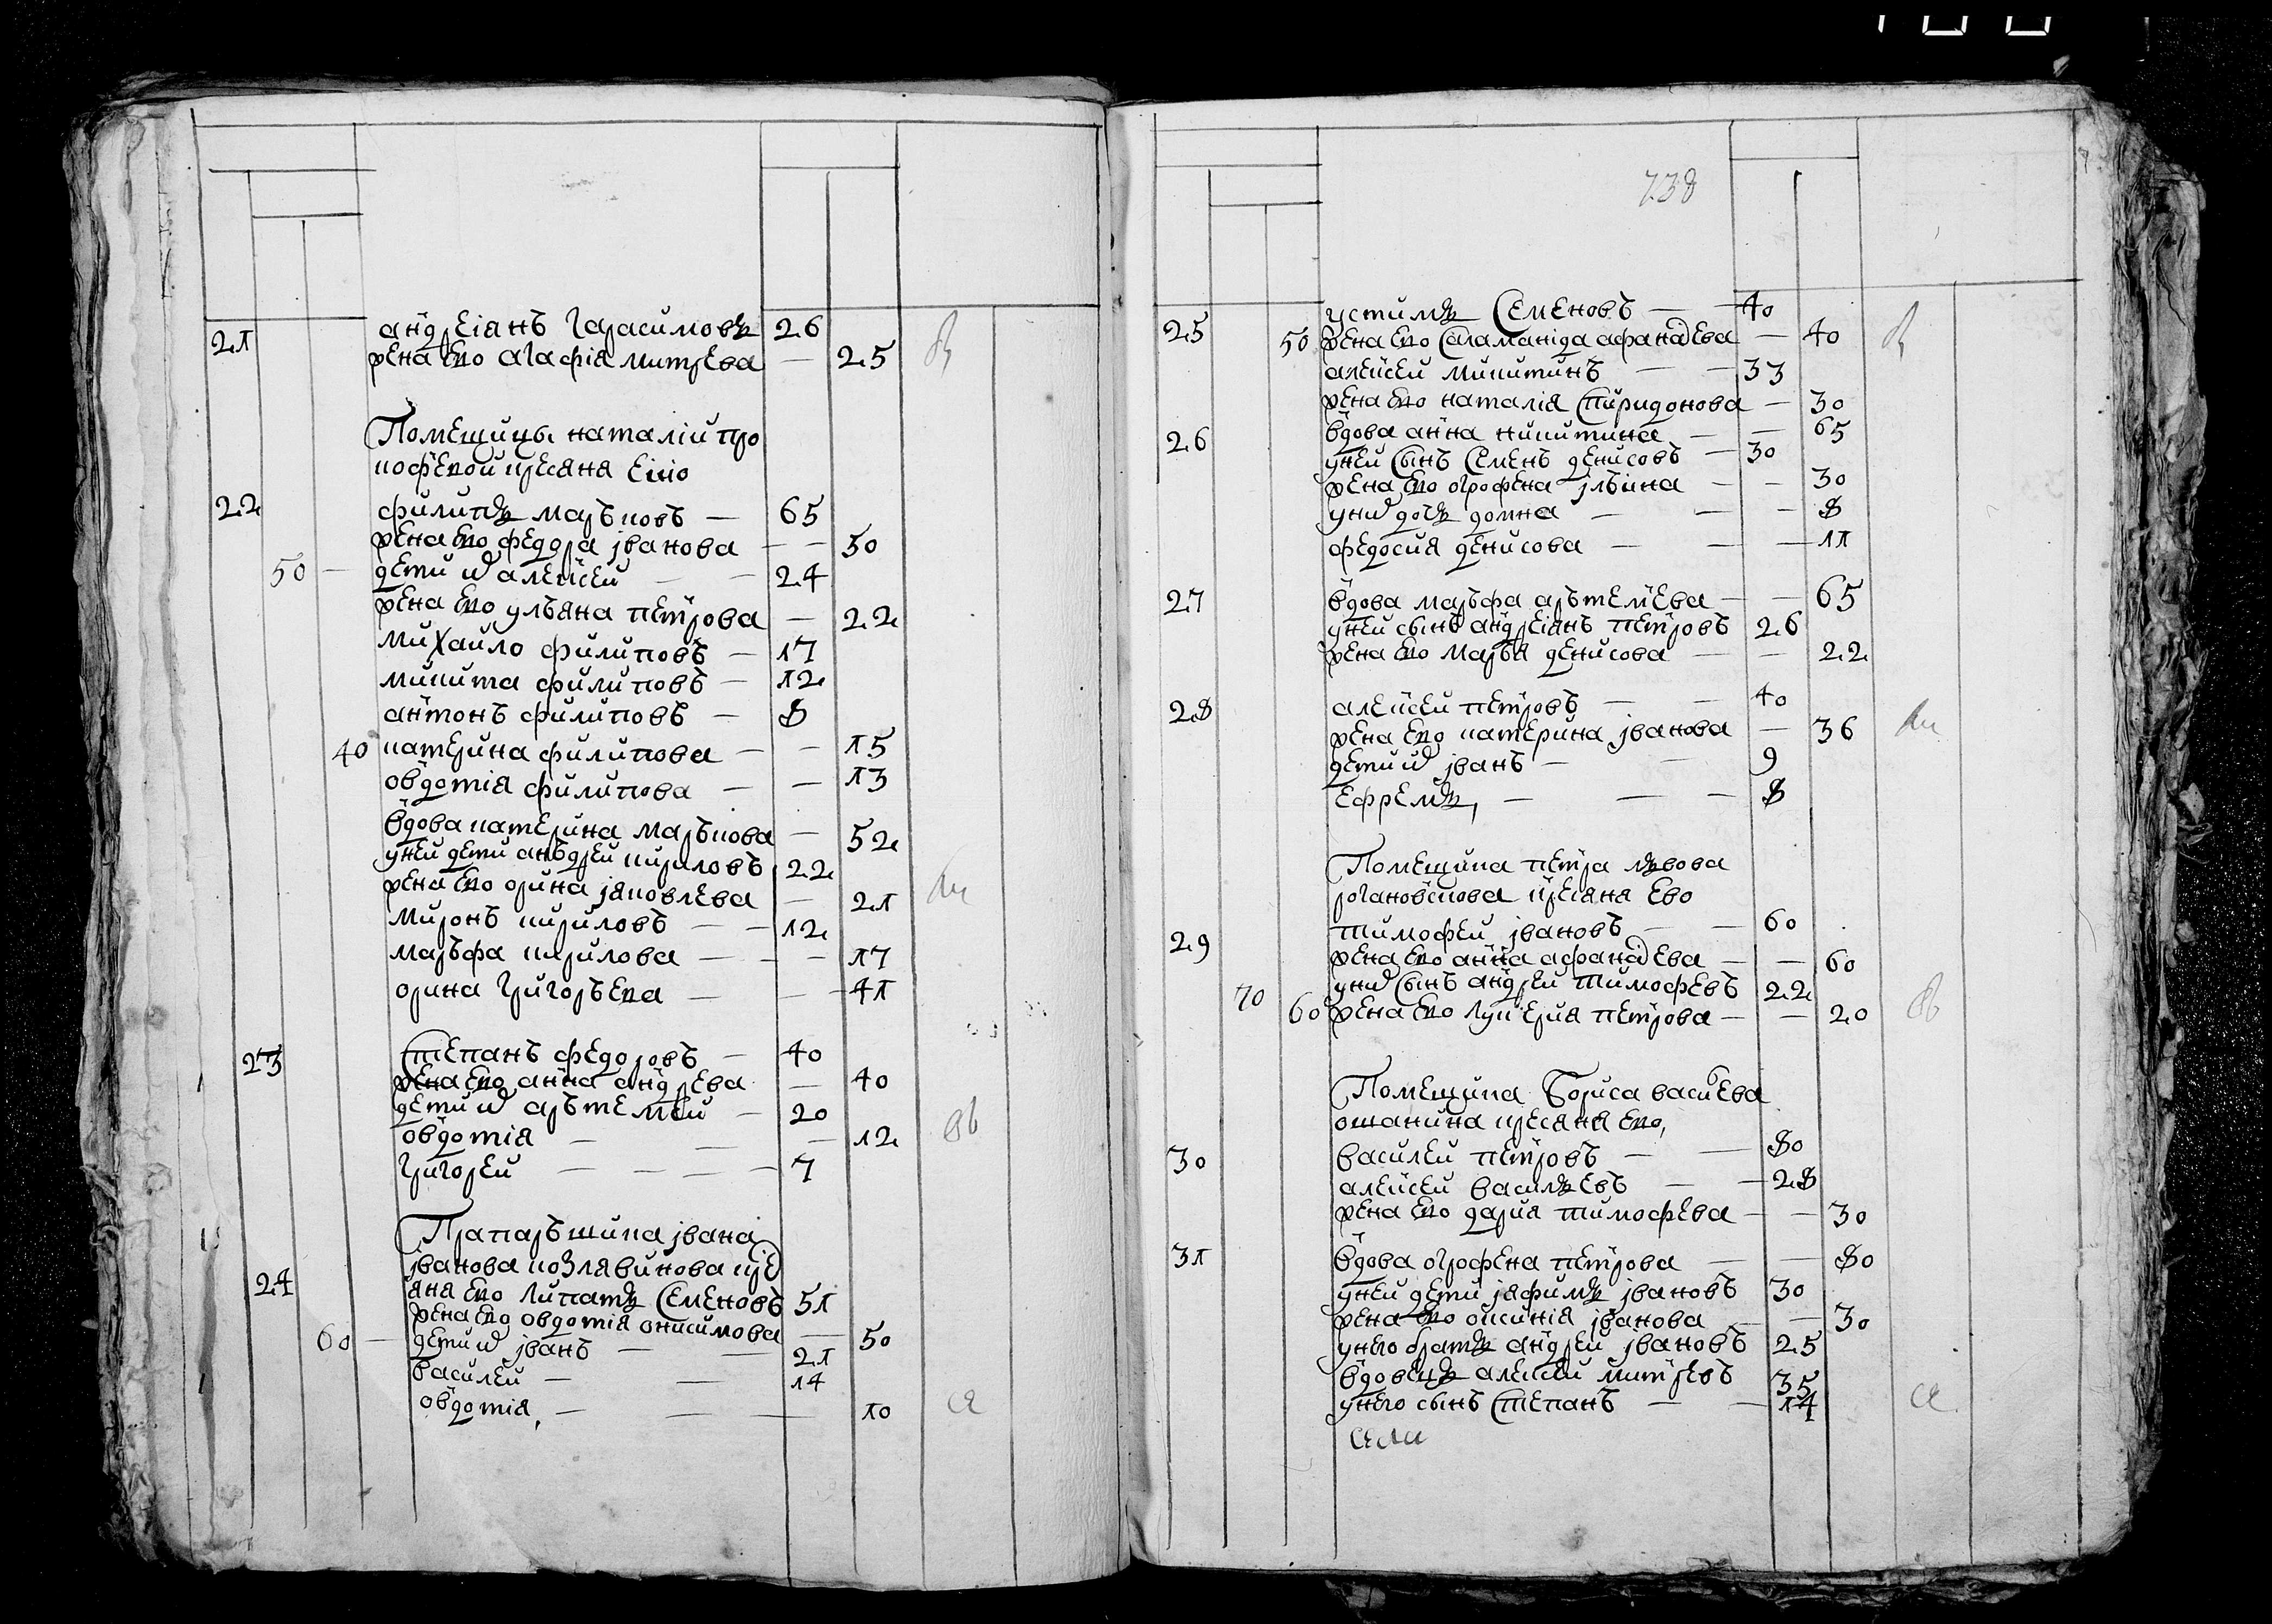 21 андреіанъ гарасимовъ 26
жена ево агафія митрева — 25
Помещицы наталіи про
кофьевой кресяня еіио
22 филипъ маръковъ — 65
жена ево федора іванова — — 50
50 — дети их алексеи — — 24
жена ево ульяна петрова — 22
михаило филиповъ — 17
микита филиповъ — 12
антонъ филиповъ — 8
40 катерина филипова — — 15
овдотія филипова — — 13
вдова катерина маръкова — 52
унеи дети анъдреи кириловъ 22
жена ево орина яковлева — 21
миронъ кириловъ — — 12
маръфа кирилова — — — 17
орина григоръева — — 41
23 степанъ федоровъ — 40
жена ево анна андрева — 40
дети их арътемеи — 20
овдотія — — — 12
григореи — — — — 7
Прапаръшика івана
іванова козлявинова крес
24 яня ево липатъ семеновъ 51
жена ево овдотия онисимова — 50
60 — дети их іванъ — — 21
василеи — — 14
овдотія, — — — 10
738
устимъ семеновъ — — 40
25 50 жена ево саламанида афанасева — 40
алексеи микитинъ — — 33
жена ево наталія спиридонова — 30
26 вдова анна никитина — — 65
унеи сынъ семенъ денисовъ — 30
жена ево огрофена ільина — — 30
уних дочь домна — — — 8
федосия денисова — — — 11
27 вдова маръфа арътемева — — 65
унеи сынъ андреіянъ петровъ 26
жена ево маръя денисова — — 22
28 алексеи петровъ — — 40
жена ево катерина іванова — 36
дети их іванъ — — 9
ефремъ, — — — 8
Помещика петра львова
рогановскова кресяня ево
29 тимофеи івановъ — — 60
жена ево анна афанасева — — 60
уних сынъ андреи тимофевъ 22
70 60 жена ево лукерия петрова — — 20
Помещика бориса васильева
ошанина кресяня ево,
30 василеи петровъ — — 80
алексеи васильевъ — — 28
жена ево дария тимофева — — 30
31 вдова огрофена петрова — — 80
унеи дети іяфимъ івановъ 30
жена ево оксинія іванова — — 30
унего братъ андреи івановъ 25
вдовецъ алексеи митревъ 35
унего сынъ степанъ — — 14